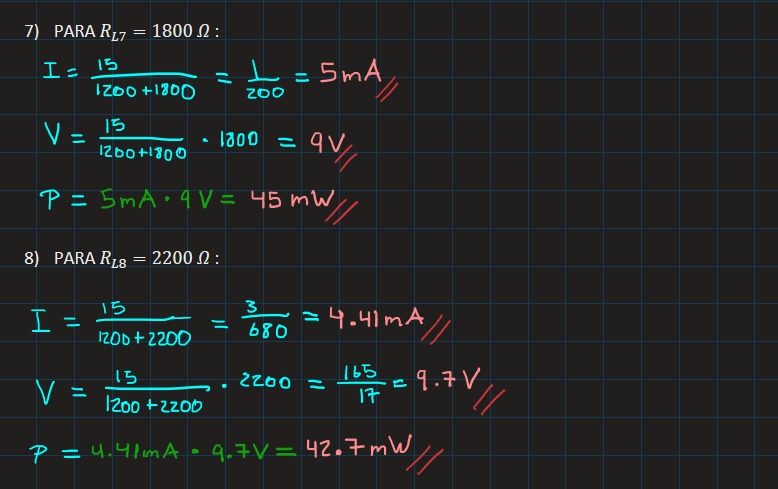 7) PARA R_L7 = 1800 Ω :
I = 15/(1200+1800) = 1/200 = 5mA
V = 15/(1200+1800) · 1800 = 9V
P = 5mA · 9V = 45 mW
8) PARA R_L8 = 2200 Ω :
I = 15/(1200+2200) = 3/680 = 4.41mA
V = 15/(1200+2200) · 2200 = 165/17 = 9.7V
P = 4.41mA · 9.7V = 42.7mW